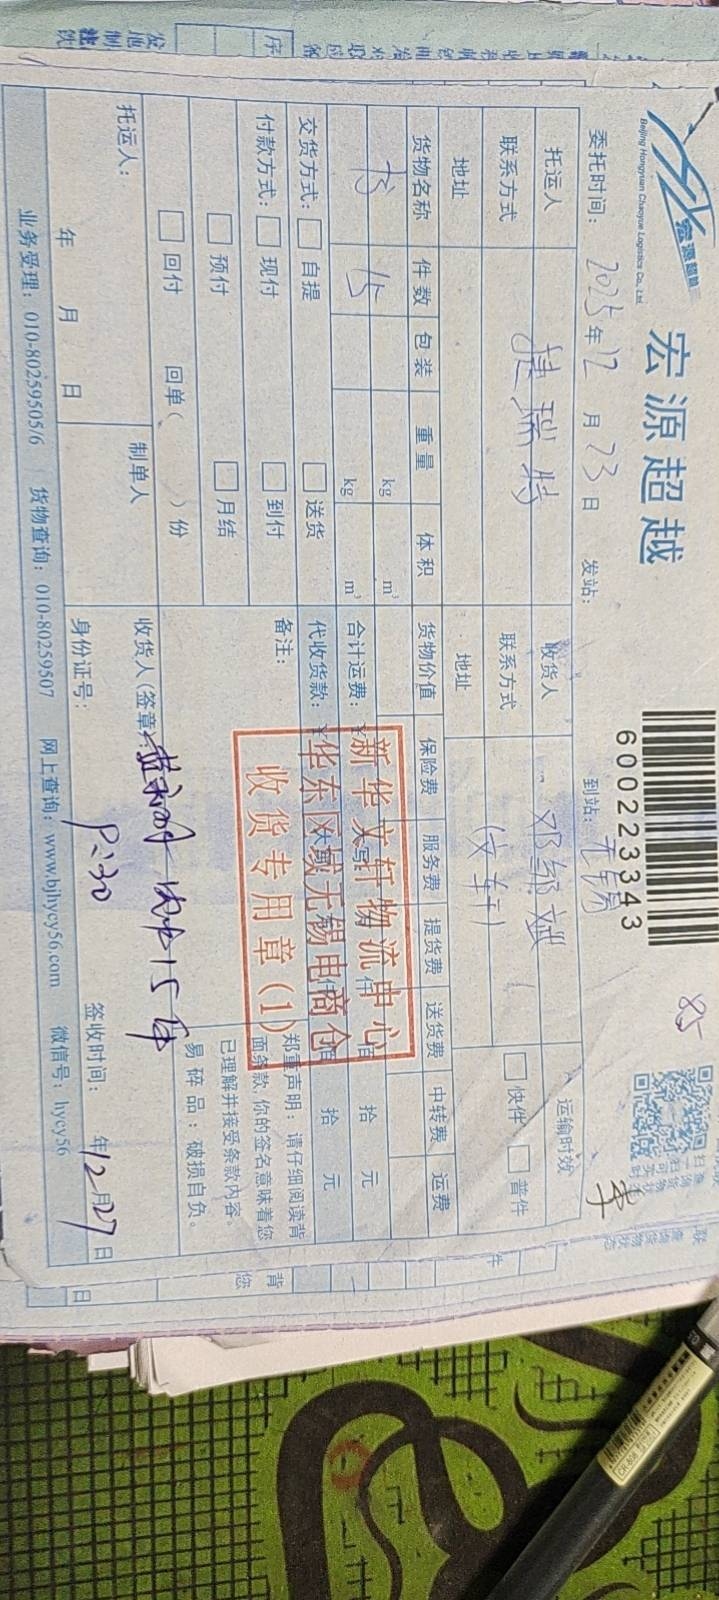 宏源超越
Beijing Hongyuan Chaoyue Logistics Co., Ltd.
宏源超越
600223343
85
委托时间: 2025年12月23日 发站: 到站: 无锡
托运人 捷瑞特 收货人 邓绍斌 运输时效
联系方式 联系方式 (文轩) 快件 普件
地址 地址
货物名称 件数 包装 重量 体积 货物价值 保险费 服务费 提货费 送货费 中转费 运费
书 15 kg m³
kg m³ 合计运费: ¥ 佰 拾 元
交货方式: 自提 送货 代收货款: ¥ 佰 拾 元
付款方式: 现付 到付 备注:
预付 月结
回付 回单( )份
新华文轩物流中心
华东区域无锡电商仓
收货专用章(1)
郑重声明: 请仔细阅读背
面条款,你的签名意味着您
已理解并接受条款内容。
易碎品: 破损自负。
托运人: 制单人 收货人(签章)
年 月 日 身份证号: 签收时间: 年12月27日
业务受理: 010-80259505/6 货物查询: 010-80259507 网上查询: www.bjhycy56.com 微信号: hycy56